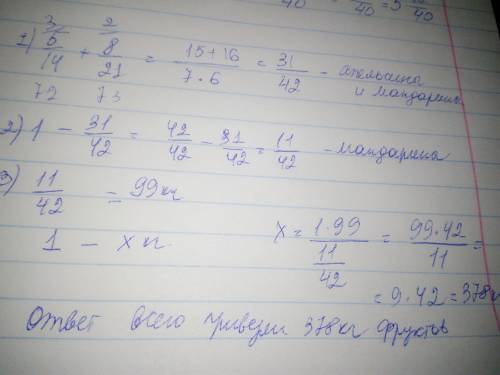 40   40 = 5 40
3   2
1) 5/14 + 8/21 = (15+16)/(7·6) = 31/42 - апельсина
и мандарина
72   73
2) 1 - 31/42 = 42/42 - 31/42 = 11/42 - мандарина
3) 11/42 = 99кг
1 - x кг.
x = (1·99)/(11/42) = (99·42)/11 =
= 9·42 = 378к
Ответ всего привезли 378кг фруктов